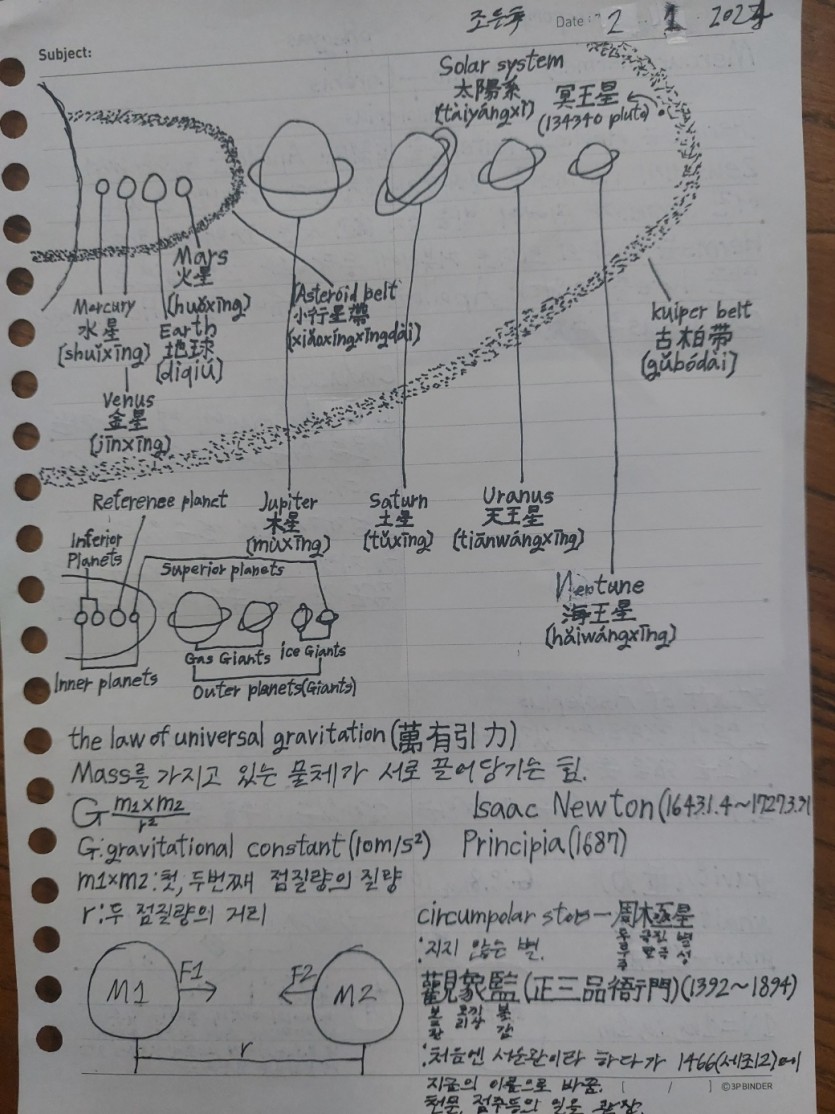 조은후 Date: 2 1 2024
Subject:
Solar system
太陽系
(tàiyángxì)
冥王星
(134340 pluto)
Mars
火星
(huǒxīng)
Mercury
水星
(shuǐxīng)
Earth
地球
(dìqiú)
Venus
金星
(jīnxīng)
Asteroid belt
小行星帶
(xiǎoxíngxīngdài)
kuiper belt
古柏帶
(gǔbódài)
Jupiter
木星
(mùxīng)
Saturn
土星
(tǔxīng)
Uranus
天王星
(tiānwángxīng)
Neptune
海王星
(hǎiwángxīng)
Reference planet
Inferior
Planets
Superior planets
Gas Giants
ice Giants
Inner planets
Outer planets(Giants)
the law of universal gravitation (萬有引力)
Mass를 가지고 있는 물체가 서로 끌어당기는 힘.
G m1×m2
r²
Isaac Newton(1643.1.4~1727.3.31
G:gravitational constant (10m/s²)
Principia(1687)
m1×m2:첫,두번째 점질량의 질량
r:두 점질량의 거리
M1
F1
F2
M2
r
circumpolar stars-周極星
:지지 않는 별.
觀象監(正三品衙門)(1392~1894)
볼 관
볼 감
:처음엔 서운관이라 하다가 1466(세조12)에
지금의 이름으로 바꿈.
천문, 점주등의 일을 관장.
[ / ] ©3P BINDER